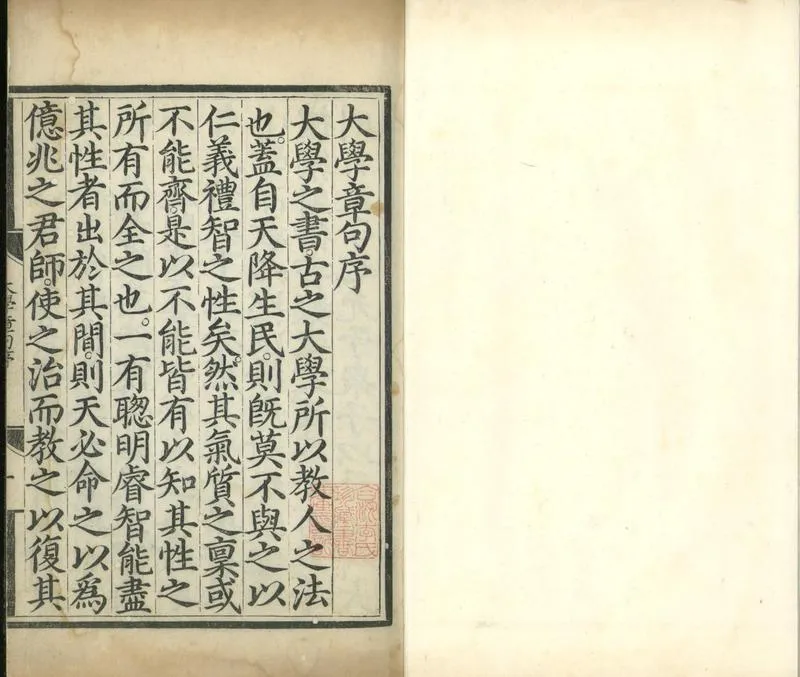 大學章句序
大學之書。古之大學所以教人之法
也。蓋自天降生民。則旣莫不與之以
仁義禮智之性矣。然其氣質之稟或
不能齊。是以不能皆有以知其性之
所有而全之也。一有聰明睿智能盡
其性者出於其間。則天必命之以爲
億兆之君師。使之治而教之以復其